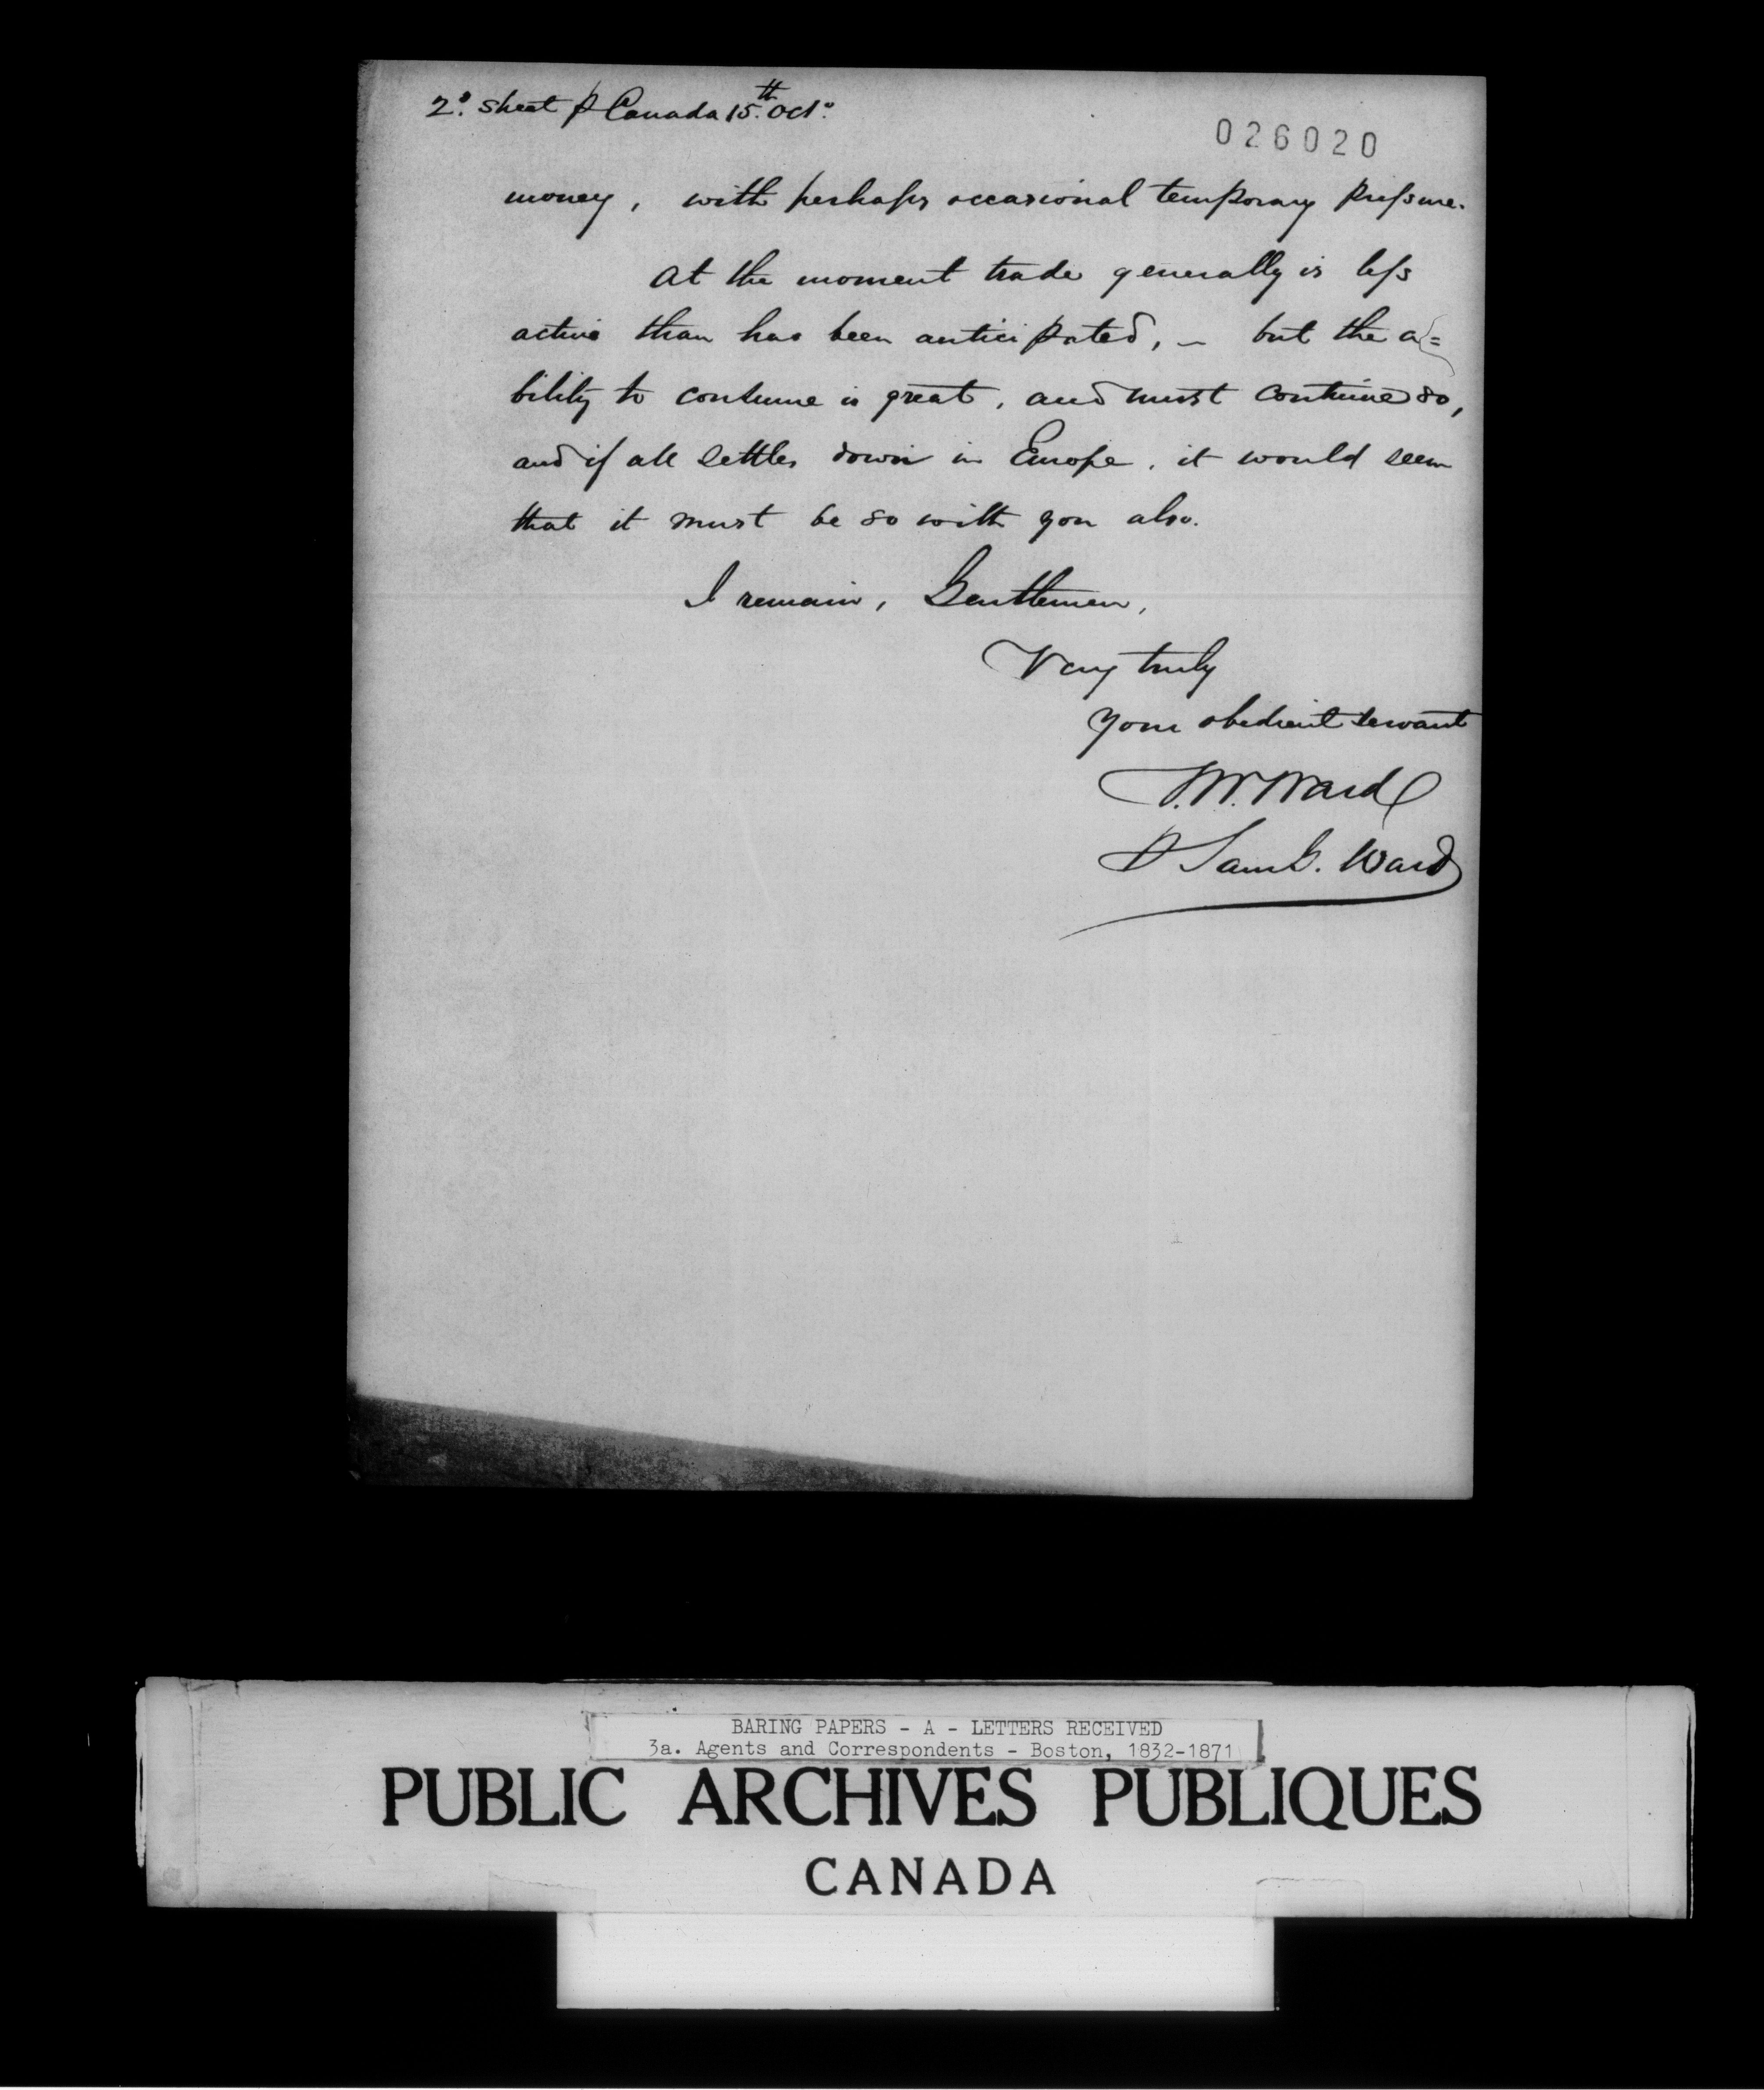 2d. sheet p Canada 15th. Oct.
026020
money, with perhaps occasional temporary pressure.
At the moment trade generally is less
active than has been anticipated, – but the a=
bility to consume is great, and must continue so,
and if all settles down in Europe, it would seem
that it must be so with you also.
I remain, Gentlemen,
Very truly
Your obedient servant
T. W. Ward
p Sam G. Ward
BARING PAPERS - A - LETTERS RECEIVED
3a. Agents and Correspondents - Boston, 1832-1871
PUBLIC ARCHIVES PUBLIQUES
CANADA